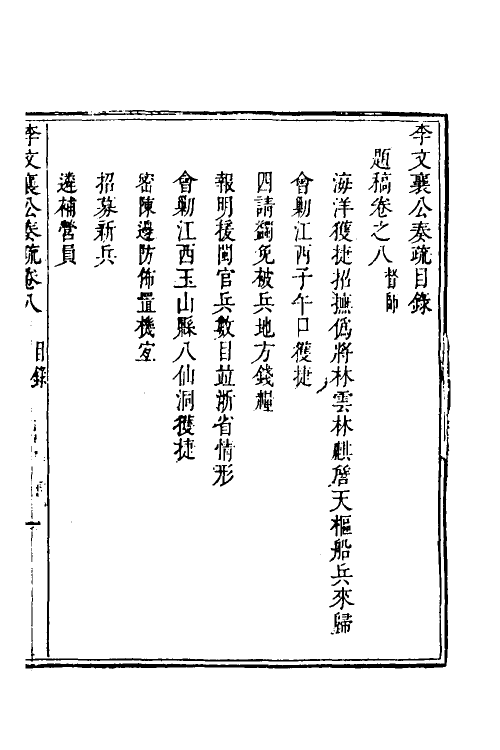 李文襄公奏疏目錄
題稿卷之八 督師
海洋獲捷招撫僞將林雲林麒詹天樞船兵來歸
會勦江西子午口獲捷
四請蠲免被兵地方錢糧
報明援閩官兵數目並浙省情形
會勦江西玉山縣八仙洞獲捷
密陳邊防佈置機宜
招募新兵
遴補營員
李文襄公奏疏卷八 目錄